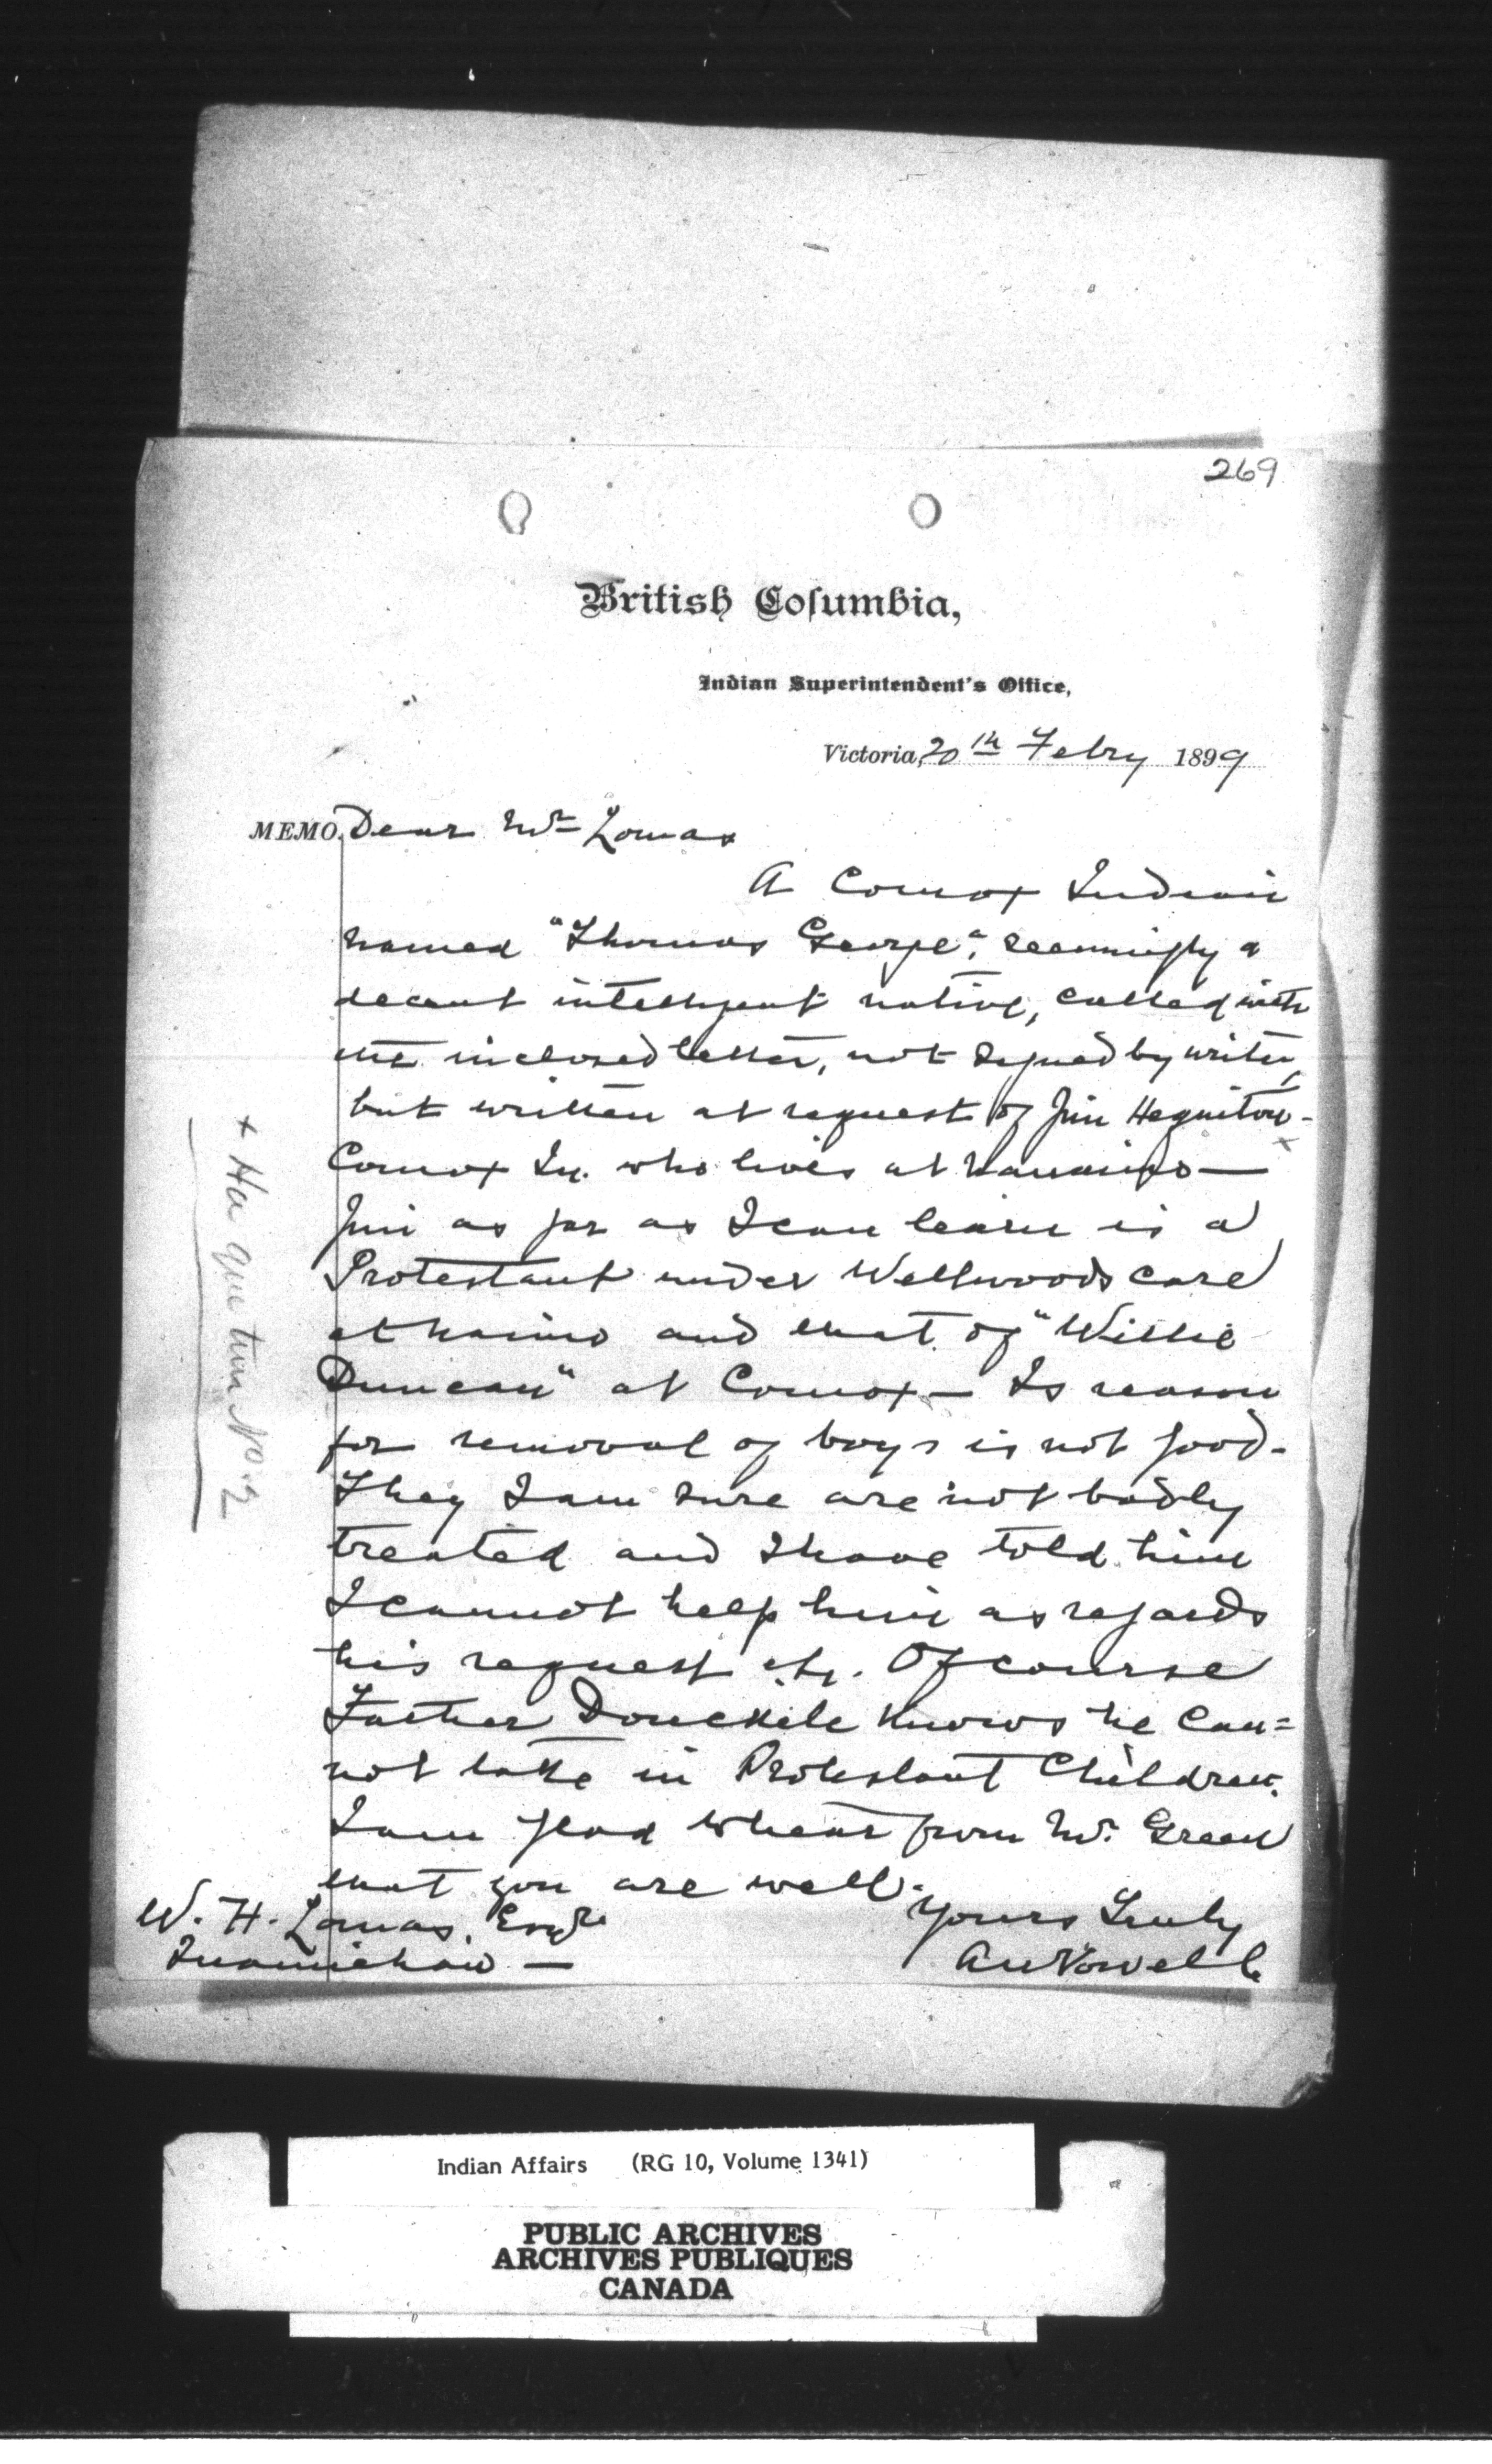 269
British Columbia,
Indian Superintendent's Office,
Victoria, 20th Febry 1899
MEMO. Dear Mr Lomas
A Comox Indian
named "Thomas George", seemingly a
decent intelligent native, called with
the inclosed letter, not signed by writer,
but written at request of Jim Haguitow -
x
Comox In. who lives at Nanaimo —
Jim as far as I can learn is a
Protestant under Wellwoods care
at Naimo and that of "Willie
Duncan" at Comox — Is reason
for removal of boys is not good -
They I am sure are not badly
treated and I have told him
I cannot help him as regards
his request &c. Of course
Father Donckele knows he can=
not take in Protestant Children.
I am glad to hear from Mr. Green
that you are well.
Yours Truly
A W Vowell
W. H. Lomas, Esqre
Quamichan —
x Ha que tun No 2
Indian Affairs (RG 10, Volume 1341)
PUBLIC ARCHIVES
ARCHIVES PUBLIQUES
CANADA